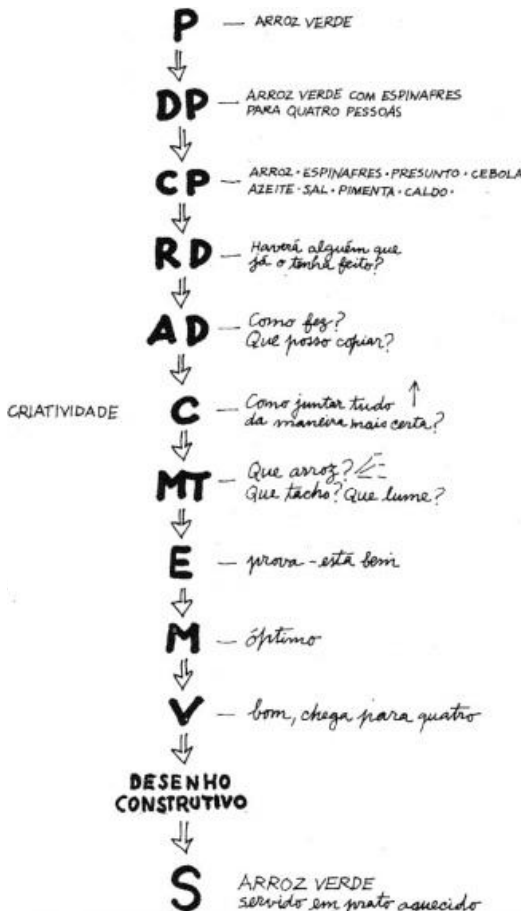 P — ARROZ VERDE
DP — ARROZ VERDE COM ESPINAFRES
PARA QUATRO PESSOAS
CP — ARROZ · ESPINAFRES · PRESUNTO · CEBOLA
AZEITE · SAL · PIMENTA · CALDO ·
RD — Haverá alguém que
já o tenha feito?
AD — Como fez?
Que posso copiar?
CRIATIVIDADE C — Como juntar tudo
da maneira mais certa?
MT — Que arroz?
Que tacho? Que lume?
E — prova – está bem
M — óptimo
V — bom, chega para quatro
DESENHO
CONSTRUTIVO
S ARROZ VERDE
servido em prato aquecido